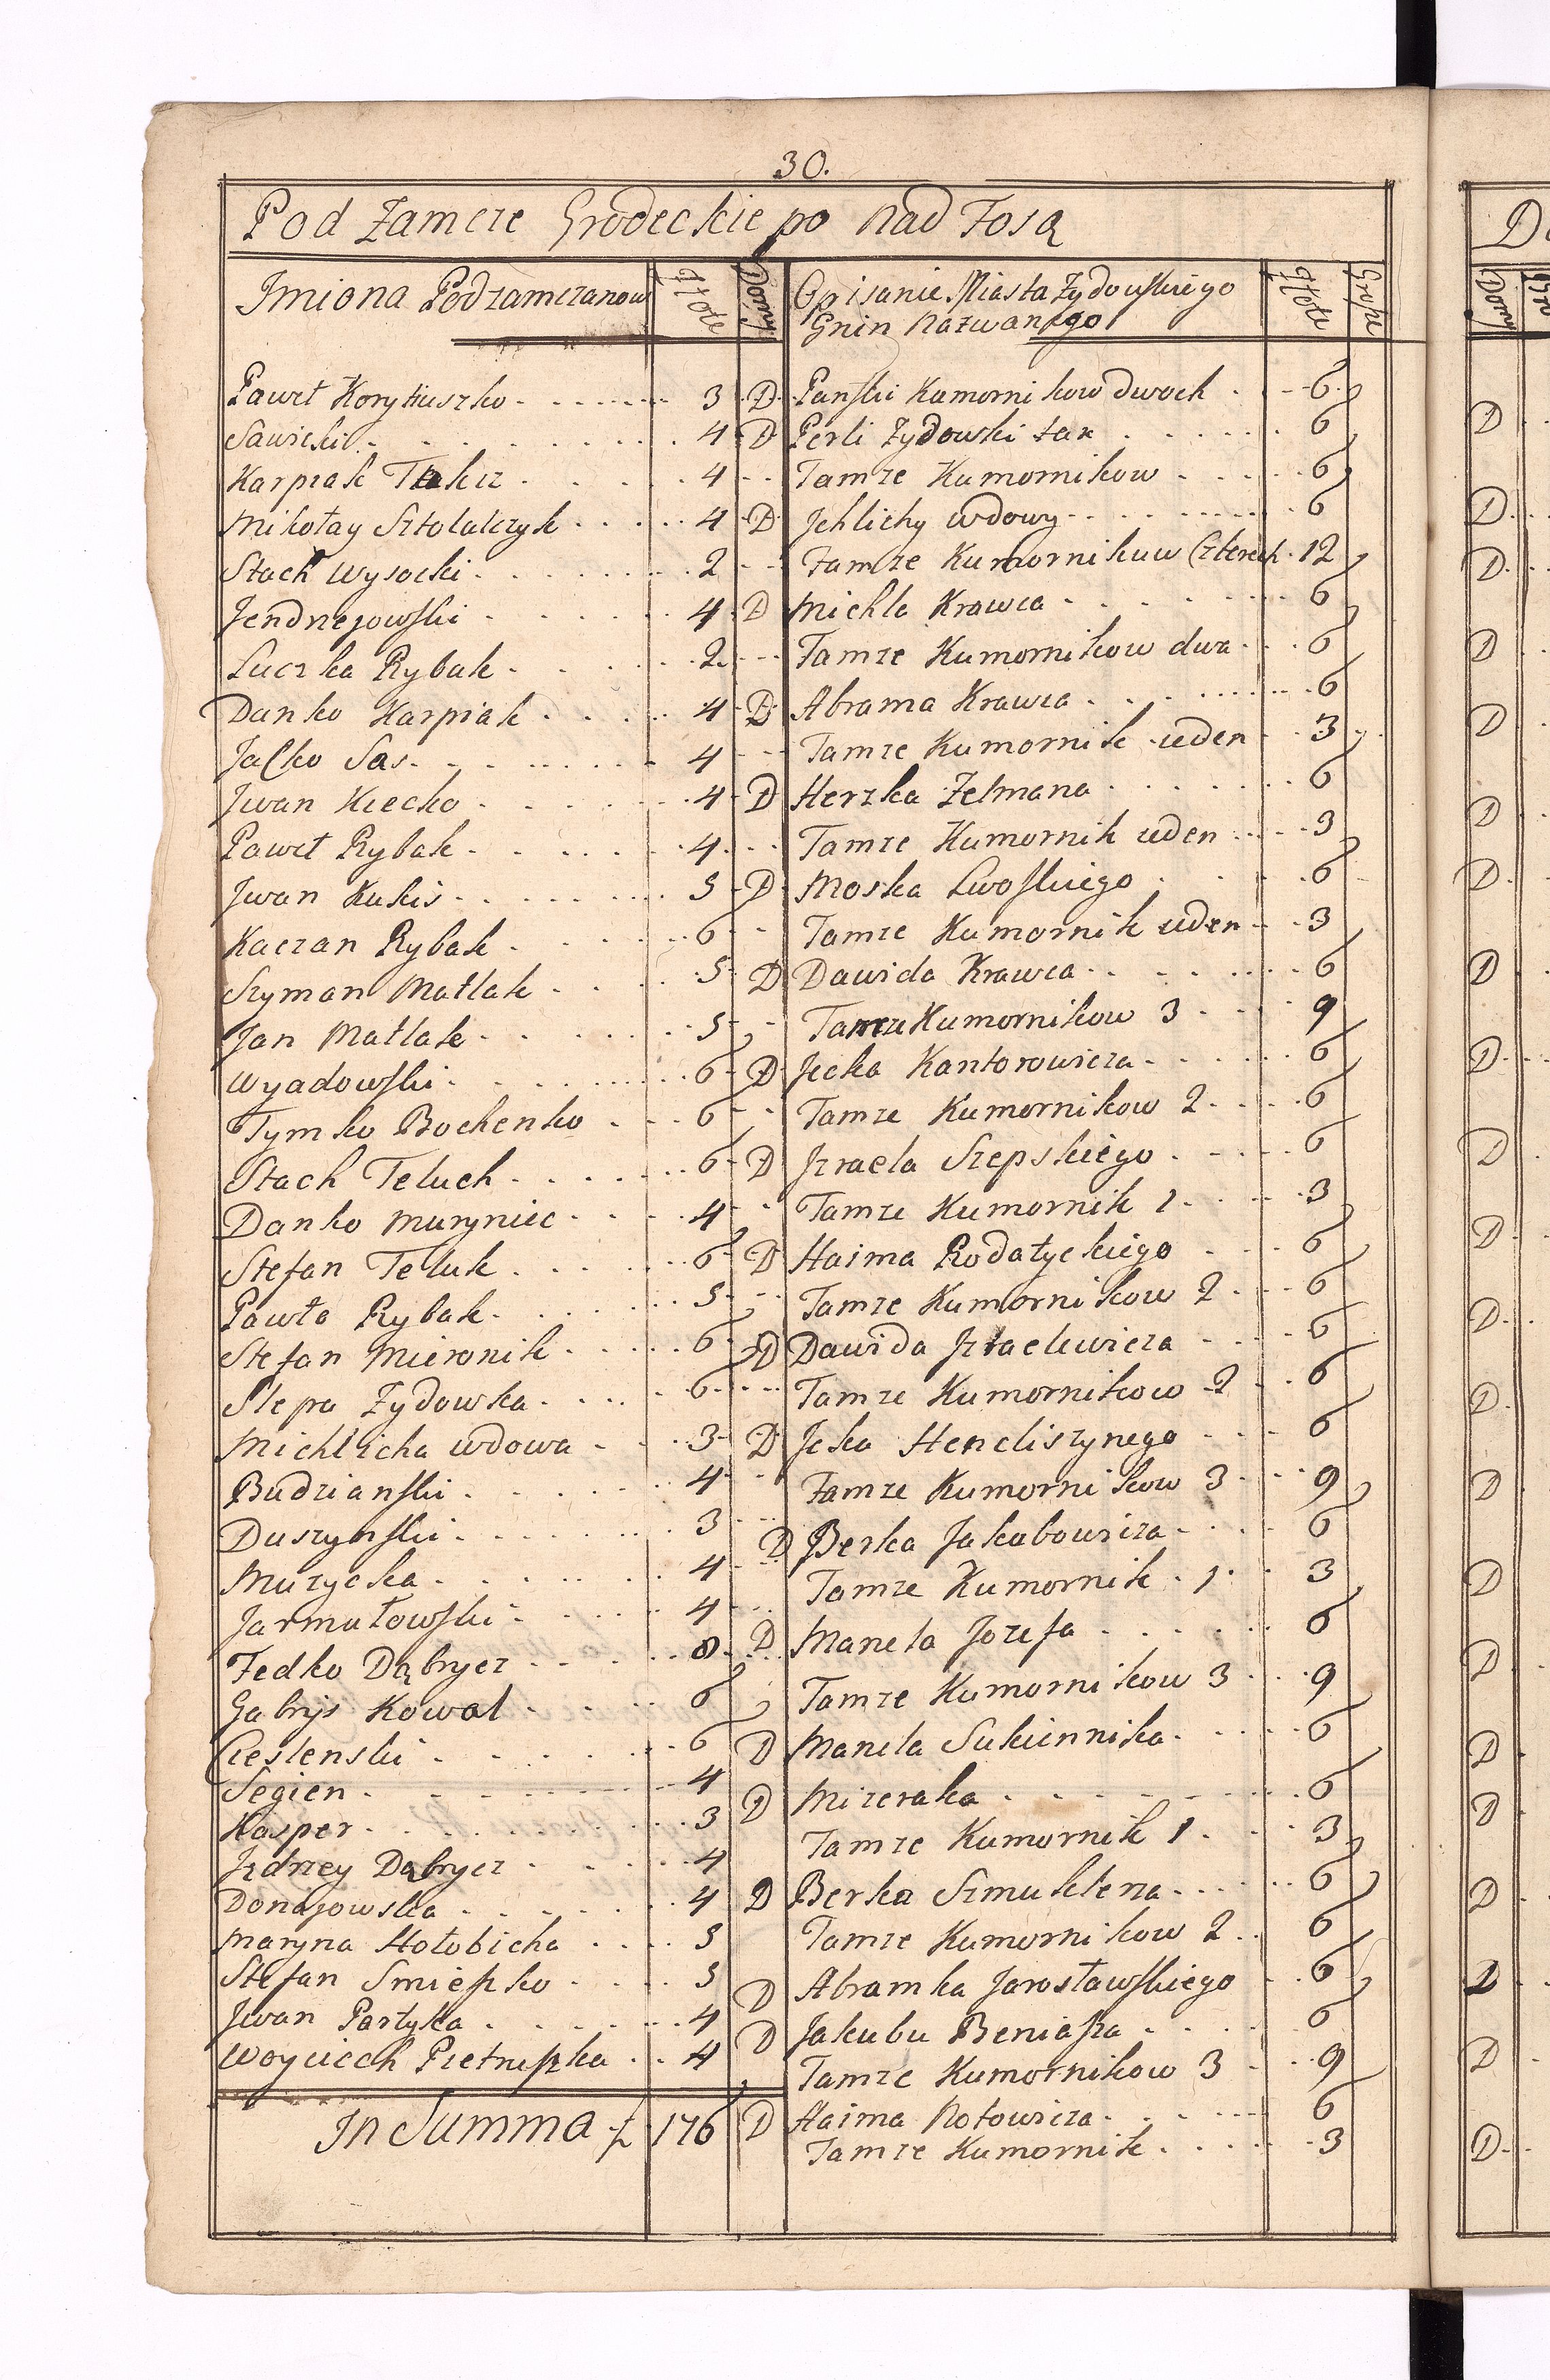 30.
Pod Zamcze Grodeckie po nad Fosą
Imiona Podzamczanow
złote
Pawet Korytiuszko 3
Sawicki 4
Karpiak Tkakcz 4
Mikołay Sztolalczyk 4
Stach Wysocki 2
Jendrzejowski 4
Luczka Rybak 2
Danko Karpiak 4
Jaſko Sas 4
Jwan Kiecko 4
Paweł Rybak 4
Jwan Kukis 5
Kaczan Rybak 6
Szyman Matlak 5
Jan Matlak 5
Wyadowski 6
Tymko Bochenko 6
Stach Teluch 6
Danko Muryniec 4
Stefan Teluk 6
Pawło Rybak 5
Stefan Mieronik 6
Slepa Zydowka 6
Michlicha wdowa 3
Budzianski 4
Duszynski 3
Muzycka 4
Jarmułowski 4
Fedko Dąbrycz 8
Gabrys Kowal 6
Cieslenski 6
Segien 4
Kasper 3
Jędrzey Dąbrycz 4
Donajowska 4
Maryna Hołobicha 5
Stefan Smieszko 5
Jwan Partyka 4
Woyciech Pietruszka 4
In Summa f 176
Domy
Opisanie Miasta Zydowskiego
Gnin Nazwanego
złote
Grosze
D Panski Kamornikow dwoch 6
D Perli Zydowski tax 6
Tamze Kumornikow 6
D Jchlichy wdowy 6
Tamze Kumornikuw Czterech 12
D Michla Krawca 6
Tamze Kumornikow dwa 6
D Abrama Krawca 6
Tamze Kumornik ieden 3
D Herzka Zelmana 6
Tamze Kumornik ieden 3
D Moska Lwoskiego 6
Tamze Kumornik ieden 3
D Dawida Krawca 6
Tamze Kumornikow 3 9
D Jecka Kantorowicza 6
Tamze Kumornikow 2 6
D Jzraela Szepskiego 6
Tamze Kumornik 1 3
D Haima Rodatyckiego 6
Tamze Kumornikow 2 6
D Dawida Jzraelewicza 6
Tamze Kumornikow 2 6
D Jcka Hendiszynego 6
Tamze Kumornikow 3 9
D Berka Jakubowicza 6
Tamze Kumornik 1 3
D Manela Jozefa 6
Tamze Kumornikow 3 9
D Manela Sukiennika 6
D Mizeraka 6
Tamze Kumornik 1 3
D Berka Szmuklerza 6
Tamze Kumornikow 2 6
D Abramka Jarosławskiego 6
D Jakubu Beniasza 6
Tamze Kumornikow 3 9
D Haima Notowicza 6
Tamze Kumornik 3
Domy
D
D
D
D
D
D
D
D
D
D
D
D
D
D
D
D
D
D
D
D
D
D